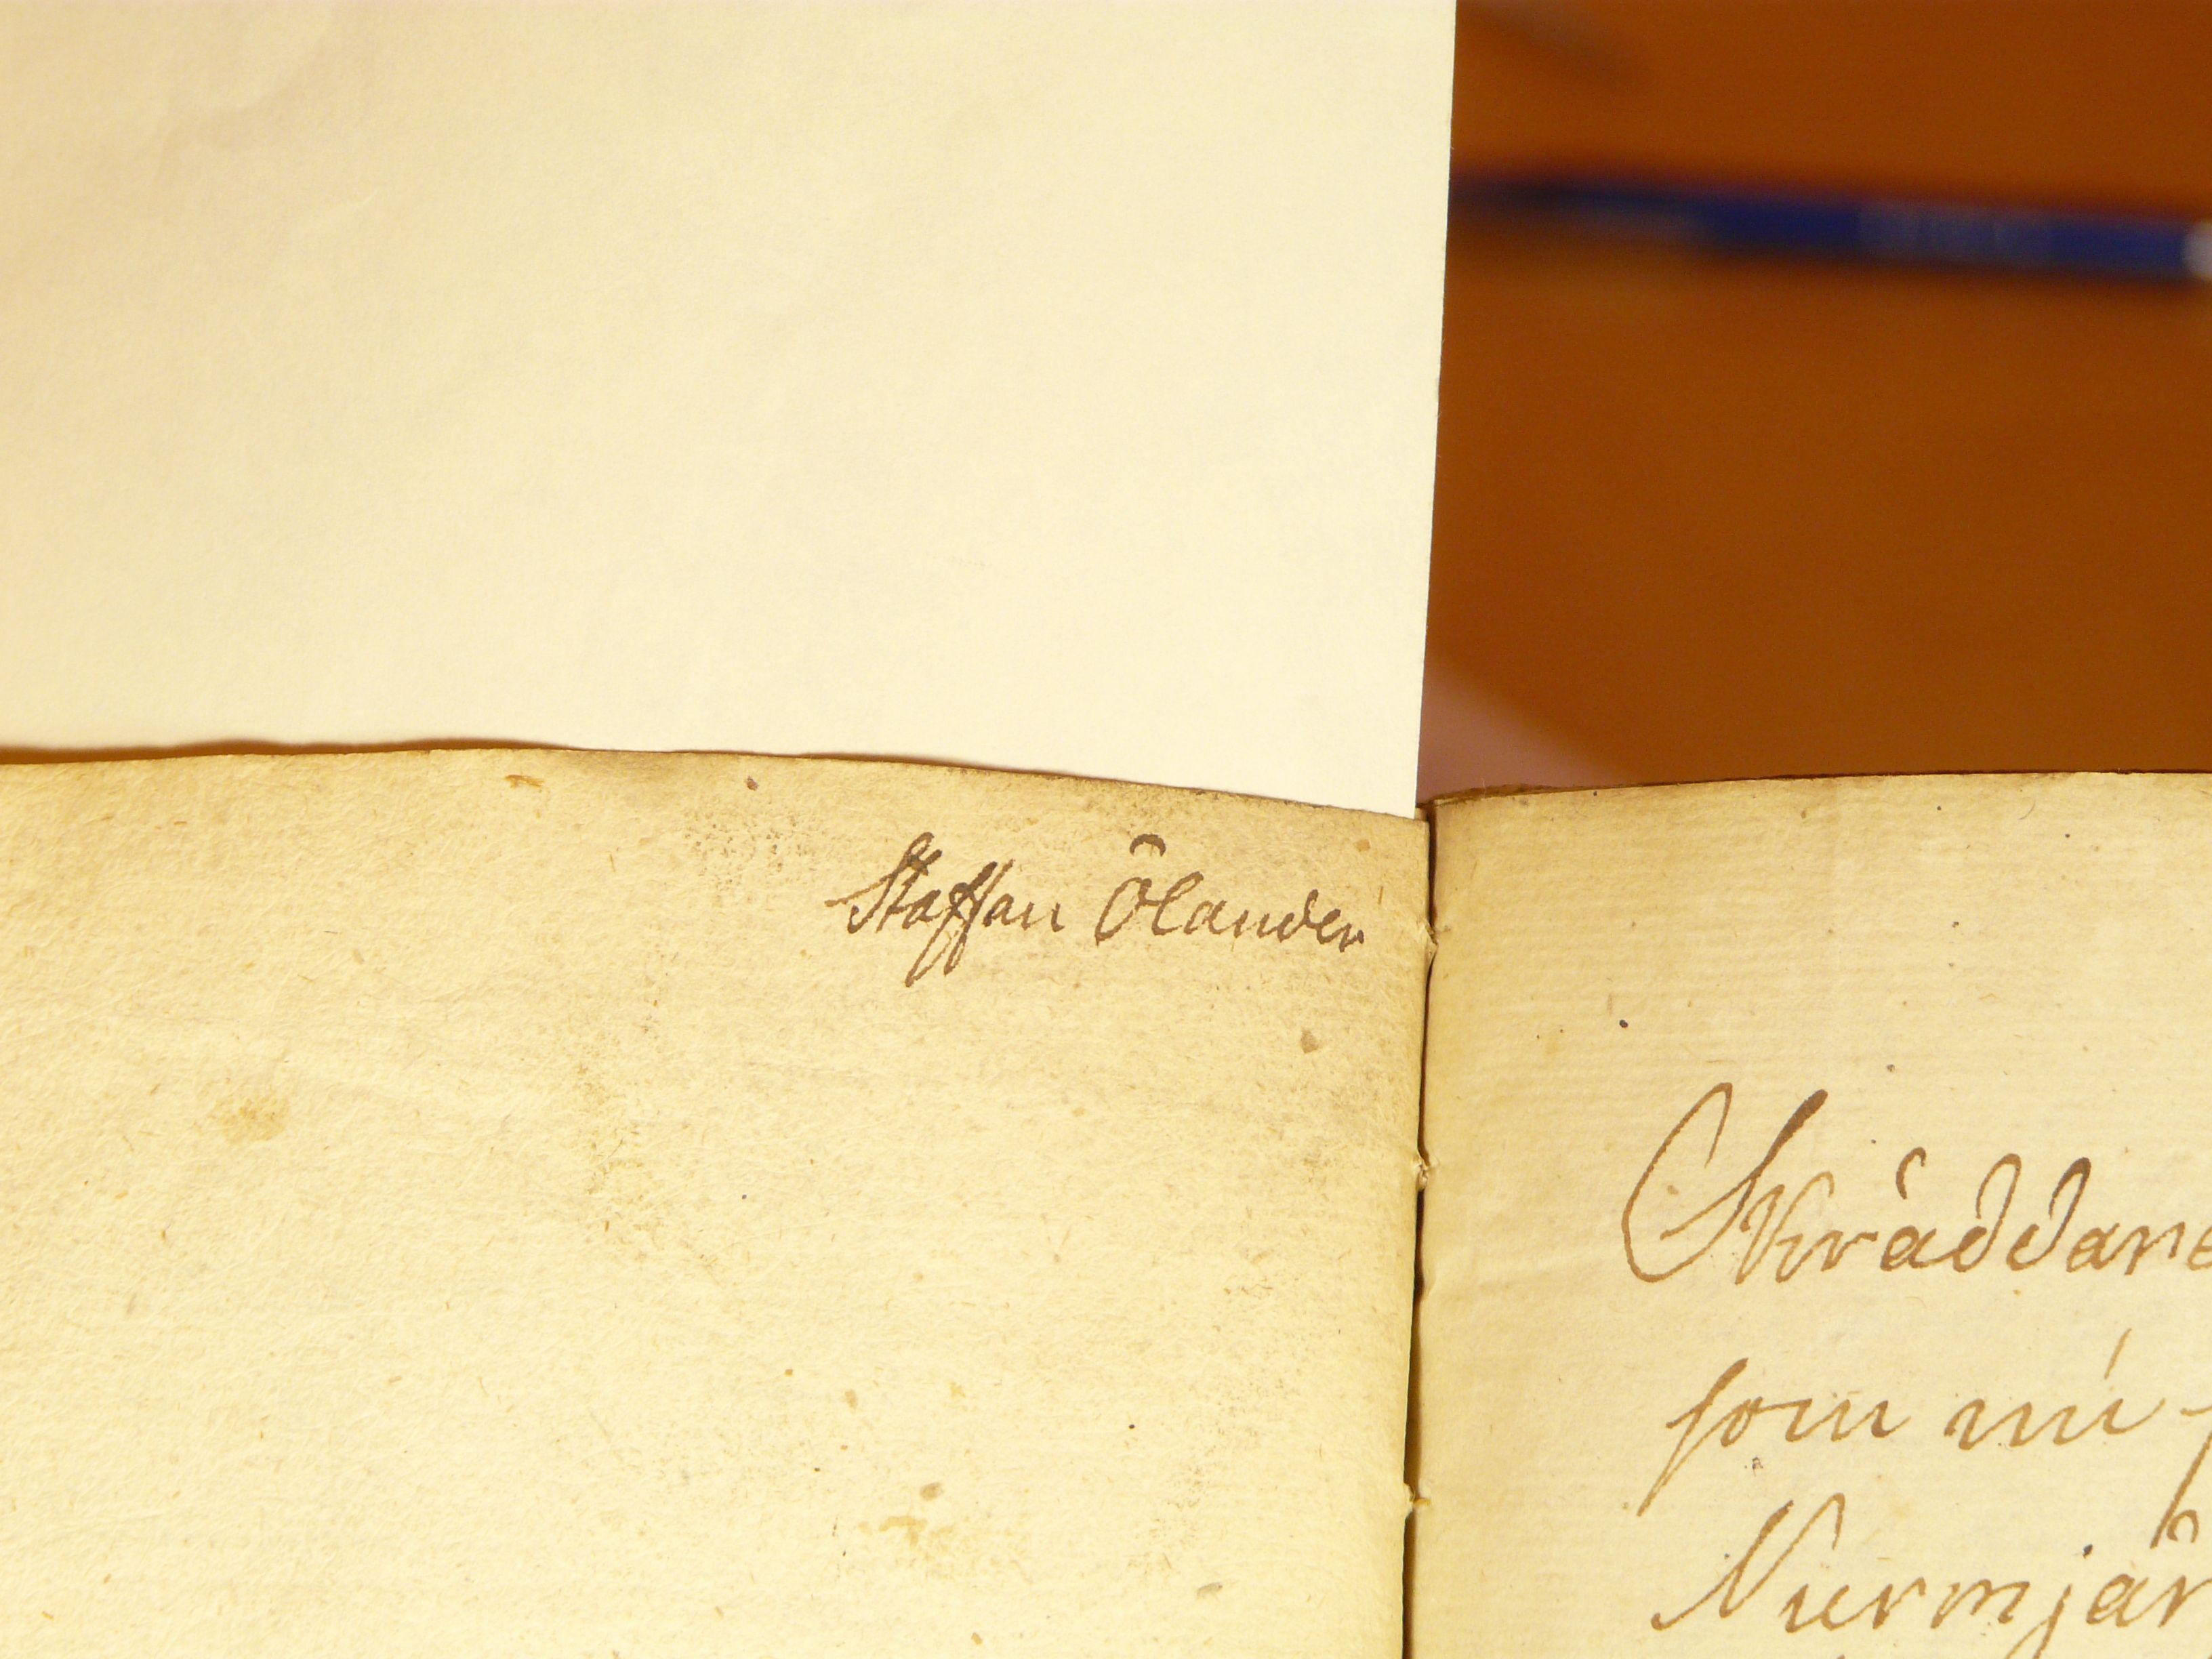 Staffan Ölander
Skräddare
som nu
Nurmjär